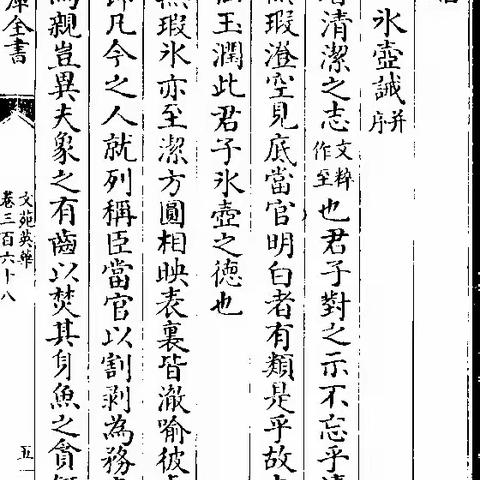 冰壺誡并序
清潔之志文粹作至也君子對之示不忘乎清
瑕澄空見底當官明白者有類是乎故
玉潤此君子冰壺之德也
瑕冰亦至潔方圓相映表裏皆澈喻彼
凡今之人就列稱臣當官以割剥為務
親豈異夫象之有齒以焚其身魚之貪
全書
文苑英華
卷三百六十八
五